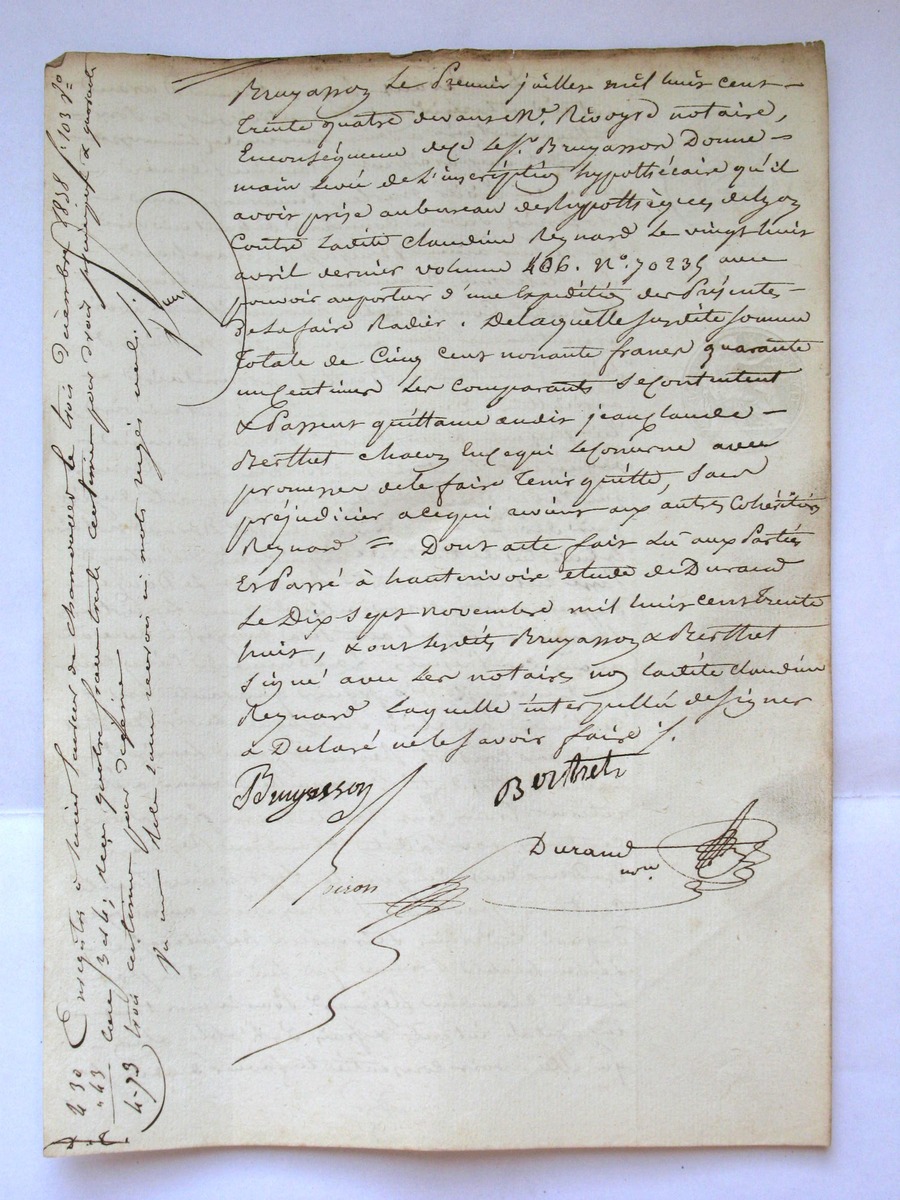 Bruyasson Le Premier juillet mil huit cent
trente quatre devant Me. Rivoyre notaire,
En conséquence de ce Le Sr. Bruyasson Donne
main Levée de L'inscription hypothécaire qu'il
avoit prise au bureau des hypothèques de Lyon
Contre Ladite Claudine Reynard Le vingt huit
avril dernier volume 466. No. 70235 avec
pouvoir au porteur d'une Expédition des Présentes
de La faire Radier. De Laquelle susdite somme
totale de Cinq cent nonante francs quarante
un Centimes Les Comparants se contentent
& Passent quittance audit jean Claude
Berthet chacun En ce qui Le Concerne avec
promesse de le faire tenir quitte, sans
préjudicier a ce qui avient aux autres Cohéritiers
Reynard = Dont acte fait Lu aux Parties
Et Passé à hauterivoire étude de Durand
Le Dix Sept novembre mil huit cent trente
huit, & ont Lesdits Bruyasson & Berthet
signé avec Les notaires non Ladite Claudine
Reynard Laquelle interpellée de signer
a Déclaré ne le savoir faire /.
Bruyasson
Berthet
Durand
nore
Enregistré à Saint Laurent de chamousset le trois Décembre 1838 fo 103 Vo
case 3 et 4, reçu quatre francs trente centimes pour droit principal & quarante
trois centimes pour dixième
4 30
" 43
4-73